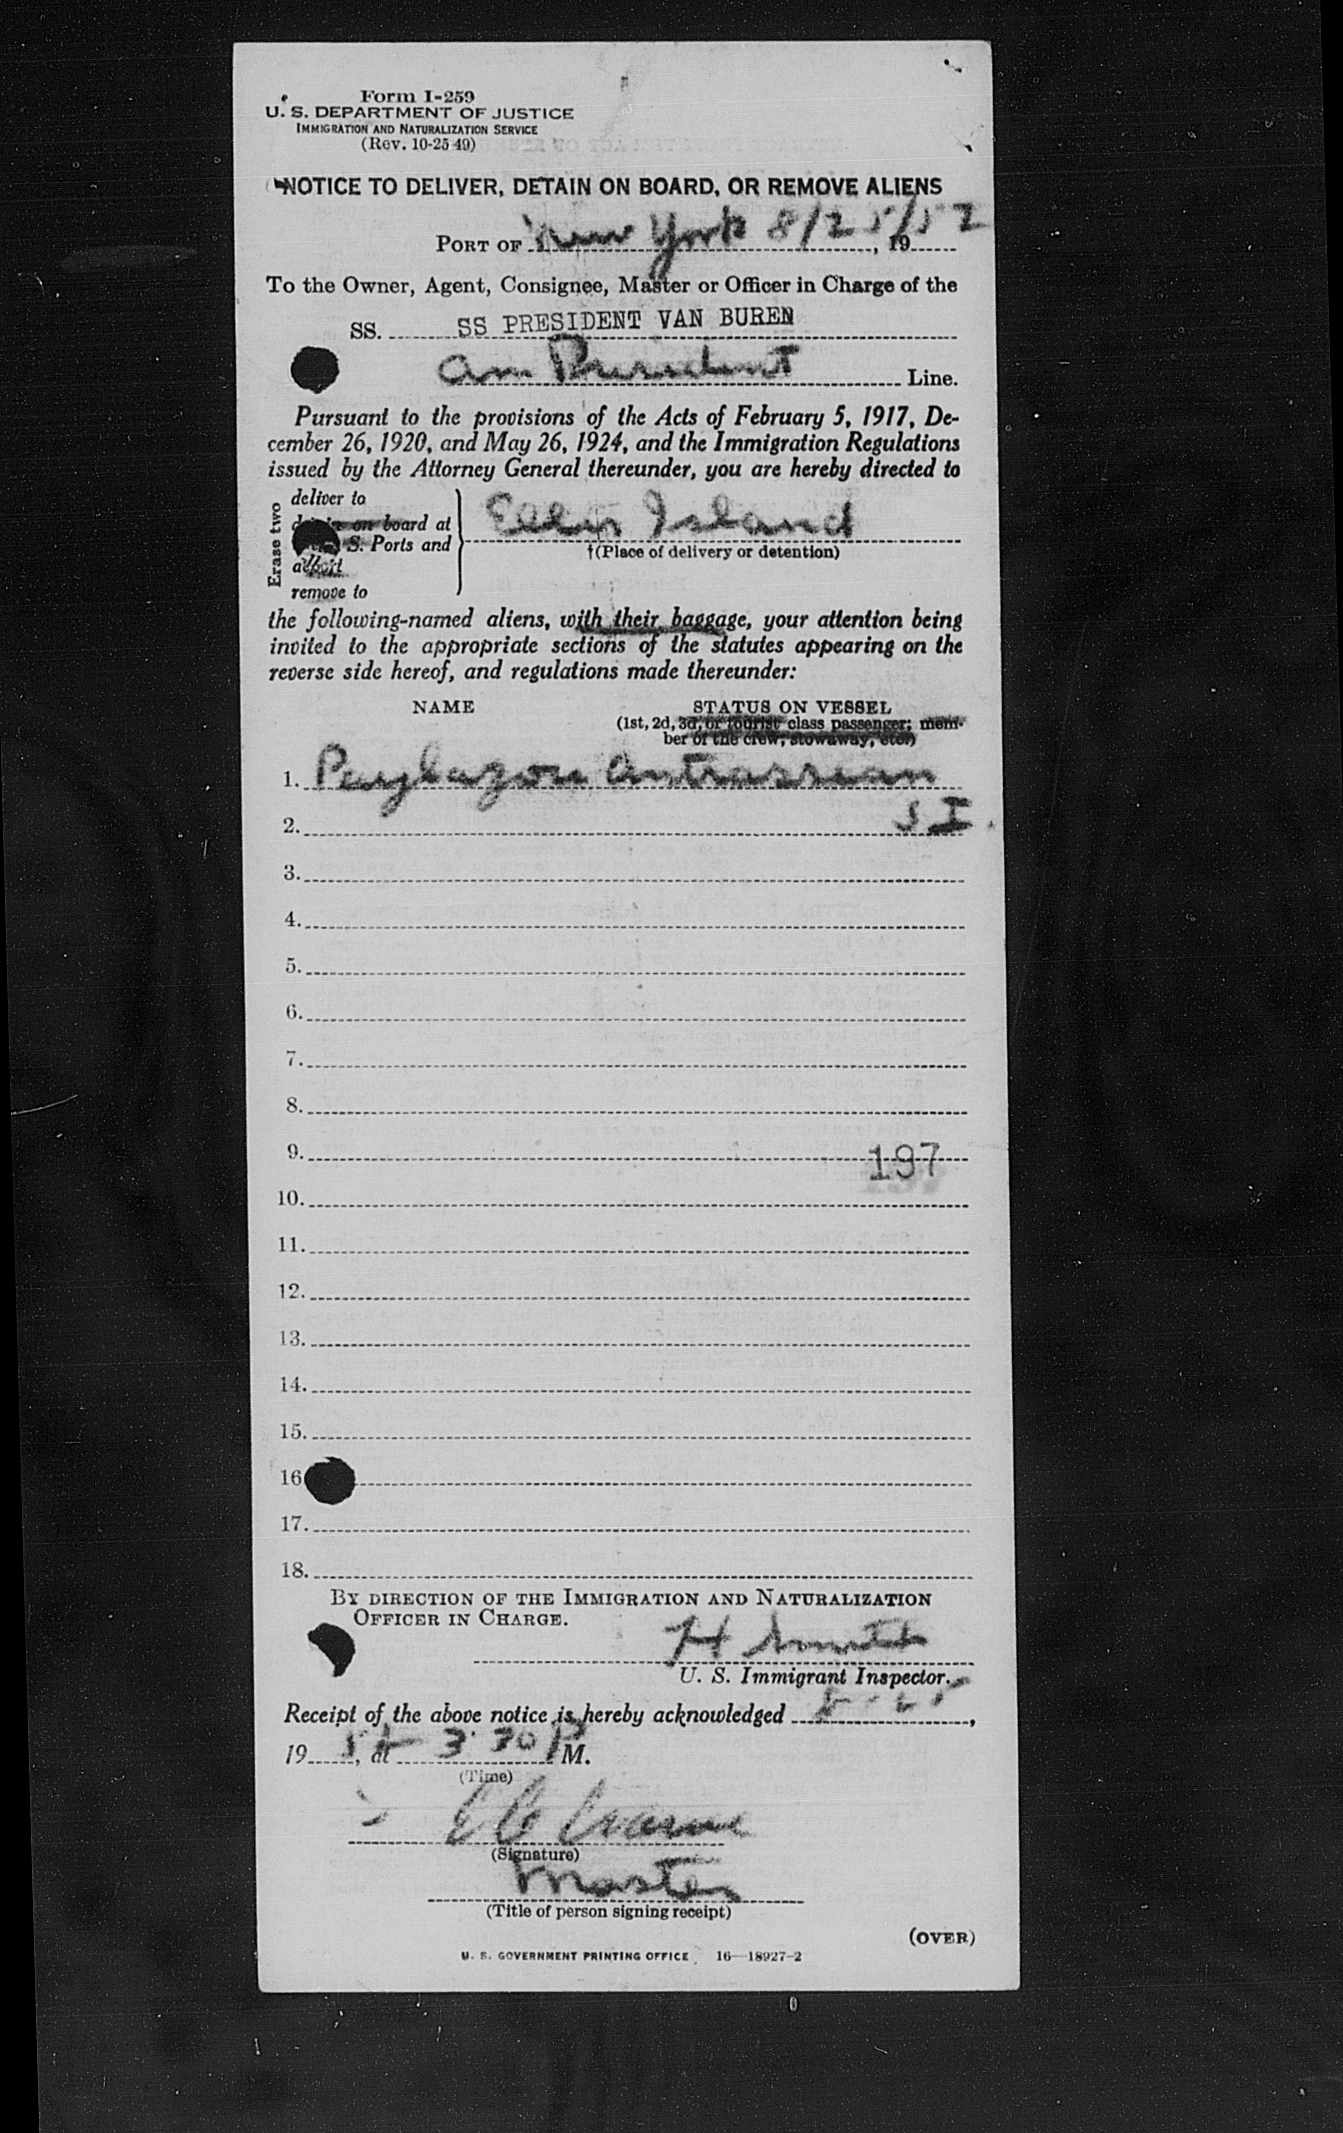 Form I-259
U. S. DEPARTMENT OF JUSTICE
IMMIGRATION AND NATURALIZATION SERVICE
(Rev. 10-25-49)
NOTICE TO DELIVER, DETAIN ON BOARD, OR REMOVE ALIENS
PORT OF New York 8/25/52, 19
To the Owner, Agent, Consignee, Master or Officer in Charge of the
SS. SS PRESIDENT VAN BUREN
Am President Line.
Pursuant to the provisions of the Acts of February 5, 1917, De-
cember 26, 1920, and May 26, 1924, and the Immigration Regulations
issued by the Attorney General thereunder, you are hereby directed to
Erase two
deliver to
on board at
S. Ports and
remove to
Ellis Island
†(Place of delivery or detention)
the following-named aliens, with their baggage, your attention being
invited to the appropriate sections of the statutes appearing on the
reverse side hereof, and regulations made thereunder:
NAME STATUS ON VESSEL
(1st, 2d, 3d, or tourist class passenger; mem-
ber of the crew, stowaway, etc.)
1. Antrassian
2. SI
3.
4.
5.
6.
7.
8.
9. 197
10.
11.
12.
13.
14.
15.
16
17.
18.
BY DIRECTION OF THE IMMIGRATION AND NATURALIZATION
OFFICER IN CHARGE.
H Smith
U. S. Immigrant Inspector.
Receipt of the above notice is hereby acknowledged 8-25,
19 52, at 3:30 P M.
(Time)
E C
(Signature)
Master
(Title of person signing receipt)
(OVER)
U. S. GOVERNMENT PRINTING OFFICE 16—18927-2